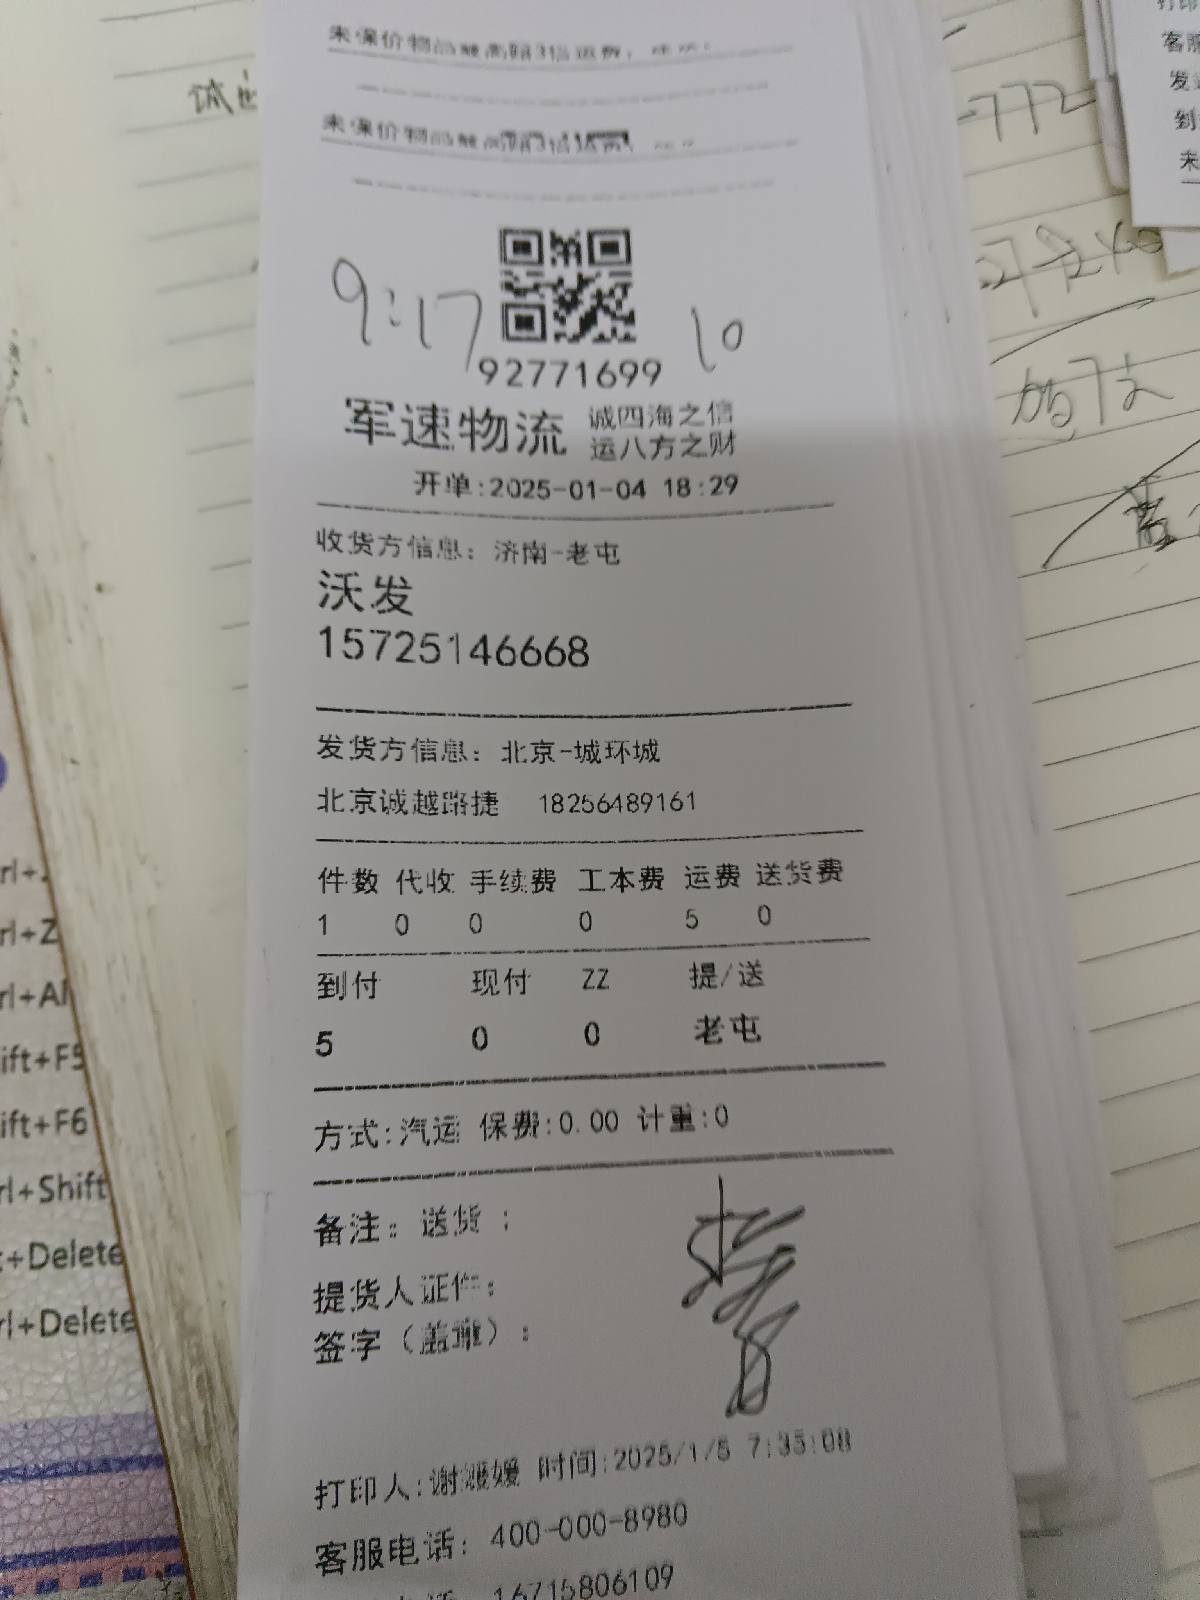 未保价物品最高赔3倍运费，
未保价物品最高赔3倍运费，
9:17
10
92771699
军速物流 诚四海之信
运八方之财
开单:2025-01-04 18:29
收货方信息: 济南-老屯
沃发
15725146668
发货方信息: 北京-城环城
北京诚越路捷 18256489161
件数 代收 手续费 工本费 运费 送货费
1 0 0 0 5 0
到付 现付 ZZ 提/送
5 0 0 老屯
方式:汽运 保费:0.00 计重:0
备注: 送货 ;
提货人证件:
签字(盖章):
打印人:谢媛媛 时间:2025/1/5 7:35:08
客服电话: 400-000-8980
16715806109
772
rl+Z
ift+F5
ift+F6
rl+Shift
+Delete
rl+Delete
打印
客服
到
未